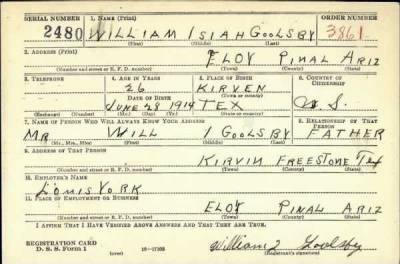 SERIAL NUMBER 1. NAME (Print) ORDER NUMBER
2480 WILLIAM ISIAH GOOLSBY 3861
(First) (Middle) (Last)
2. ADDRESS (Print)
ELOY PINAL ARIZ
(Number and street or R. F. D. number) (Town) (County) (State)
3. TELEPHONE 4. AGE IN YEARS 5. PLACE OF BIRTH 6. COUNTRY OF CITIZENSHIP
26 KIRVEN
DATE OF BIRTH (Town or county)
JUNE 28 1914 TEX U.S.
(Exchange) (Number) (Mo.) (Day) (Yr.) (State or country)
7. NAME OF PERSON WHO WILL ALWAYS KNOW YOUR ADDRESS 8. RELATIONSHIP OF THAT PERSON
MR WILL I GOOLSBY FATHER
(Mr., Mrs., Miss) (First) (Middle) (Last)
9. ADDRESS OF THAT PERSON
KIRVIN FREESTONE TEX
(Number and street or R. F. D. number) (Town) (County) (State)
10. EMPLOYER'S NAME
LOUIS YORK
11. PLACE OF EMPLOYMENT OR BUSINESS
ELOY PINAL ARIZ
(Number and street or R. F. D. number) (Town) (County) (State)
I AFFIRM THAT I HAVE VERIFIED ABOVE ANSWERS AND THAT THEY ARE TRUE.
REGISTRATION CARD
D. S. S. Form 1 (over) 16-17105 William I Goolsby
(Registrant's signature)